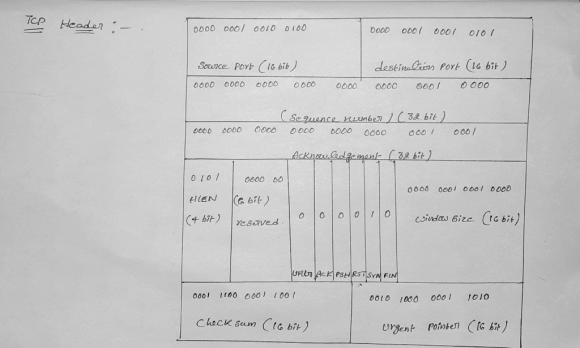 TCP Header :-
0000 0001 0010 0100
0000 0001 0001 0101
Source Port (16 bit)
destination Port (16 bit)
0000 0000 0000 0000 0000 0000 0001 0000
(Sequence number) (32 bit)
0000 0000 0000 0000 0000 0000 0001 0001
Acknowledgement (32 bit)
0101
HLEN
(4 bit)
0000 00
(6 bit)
reserved
0 0 0 0 1 0
URG ACK PSH RST SYN FIN
0000 0001 0001 0000
Window Size (16 bit)
0001 1100 0001 1001
0010 1000 0001 1010
Check sum (16 bit)
Urgent Pointer (16 bit)